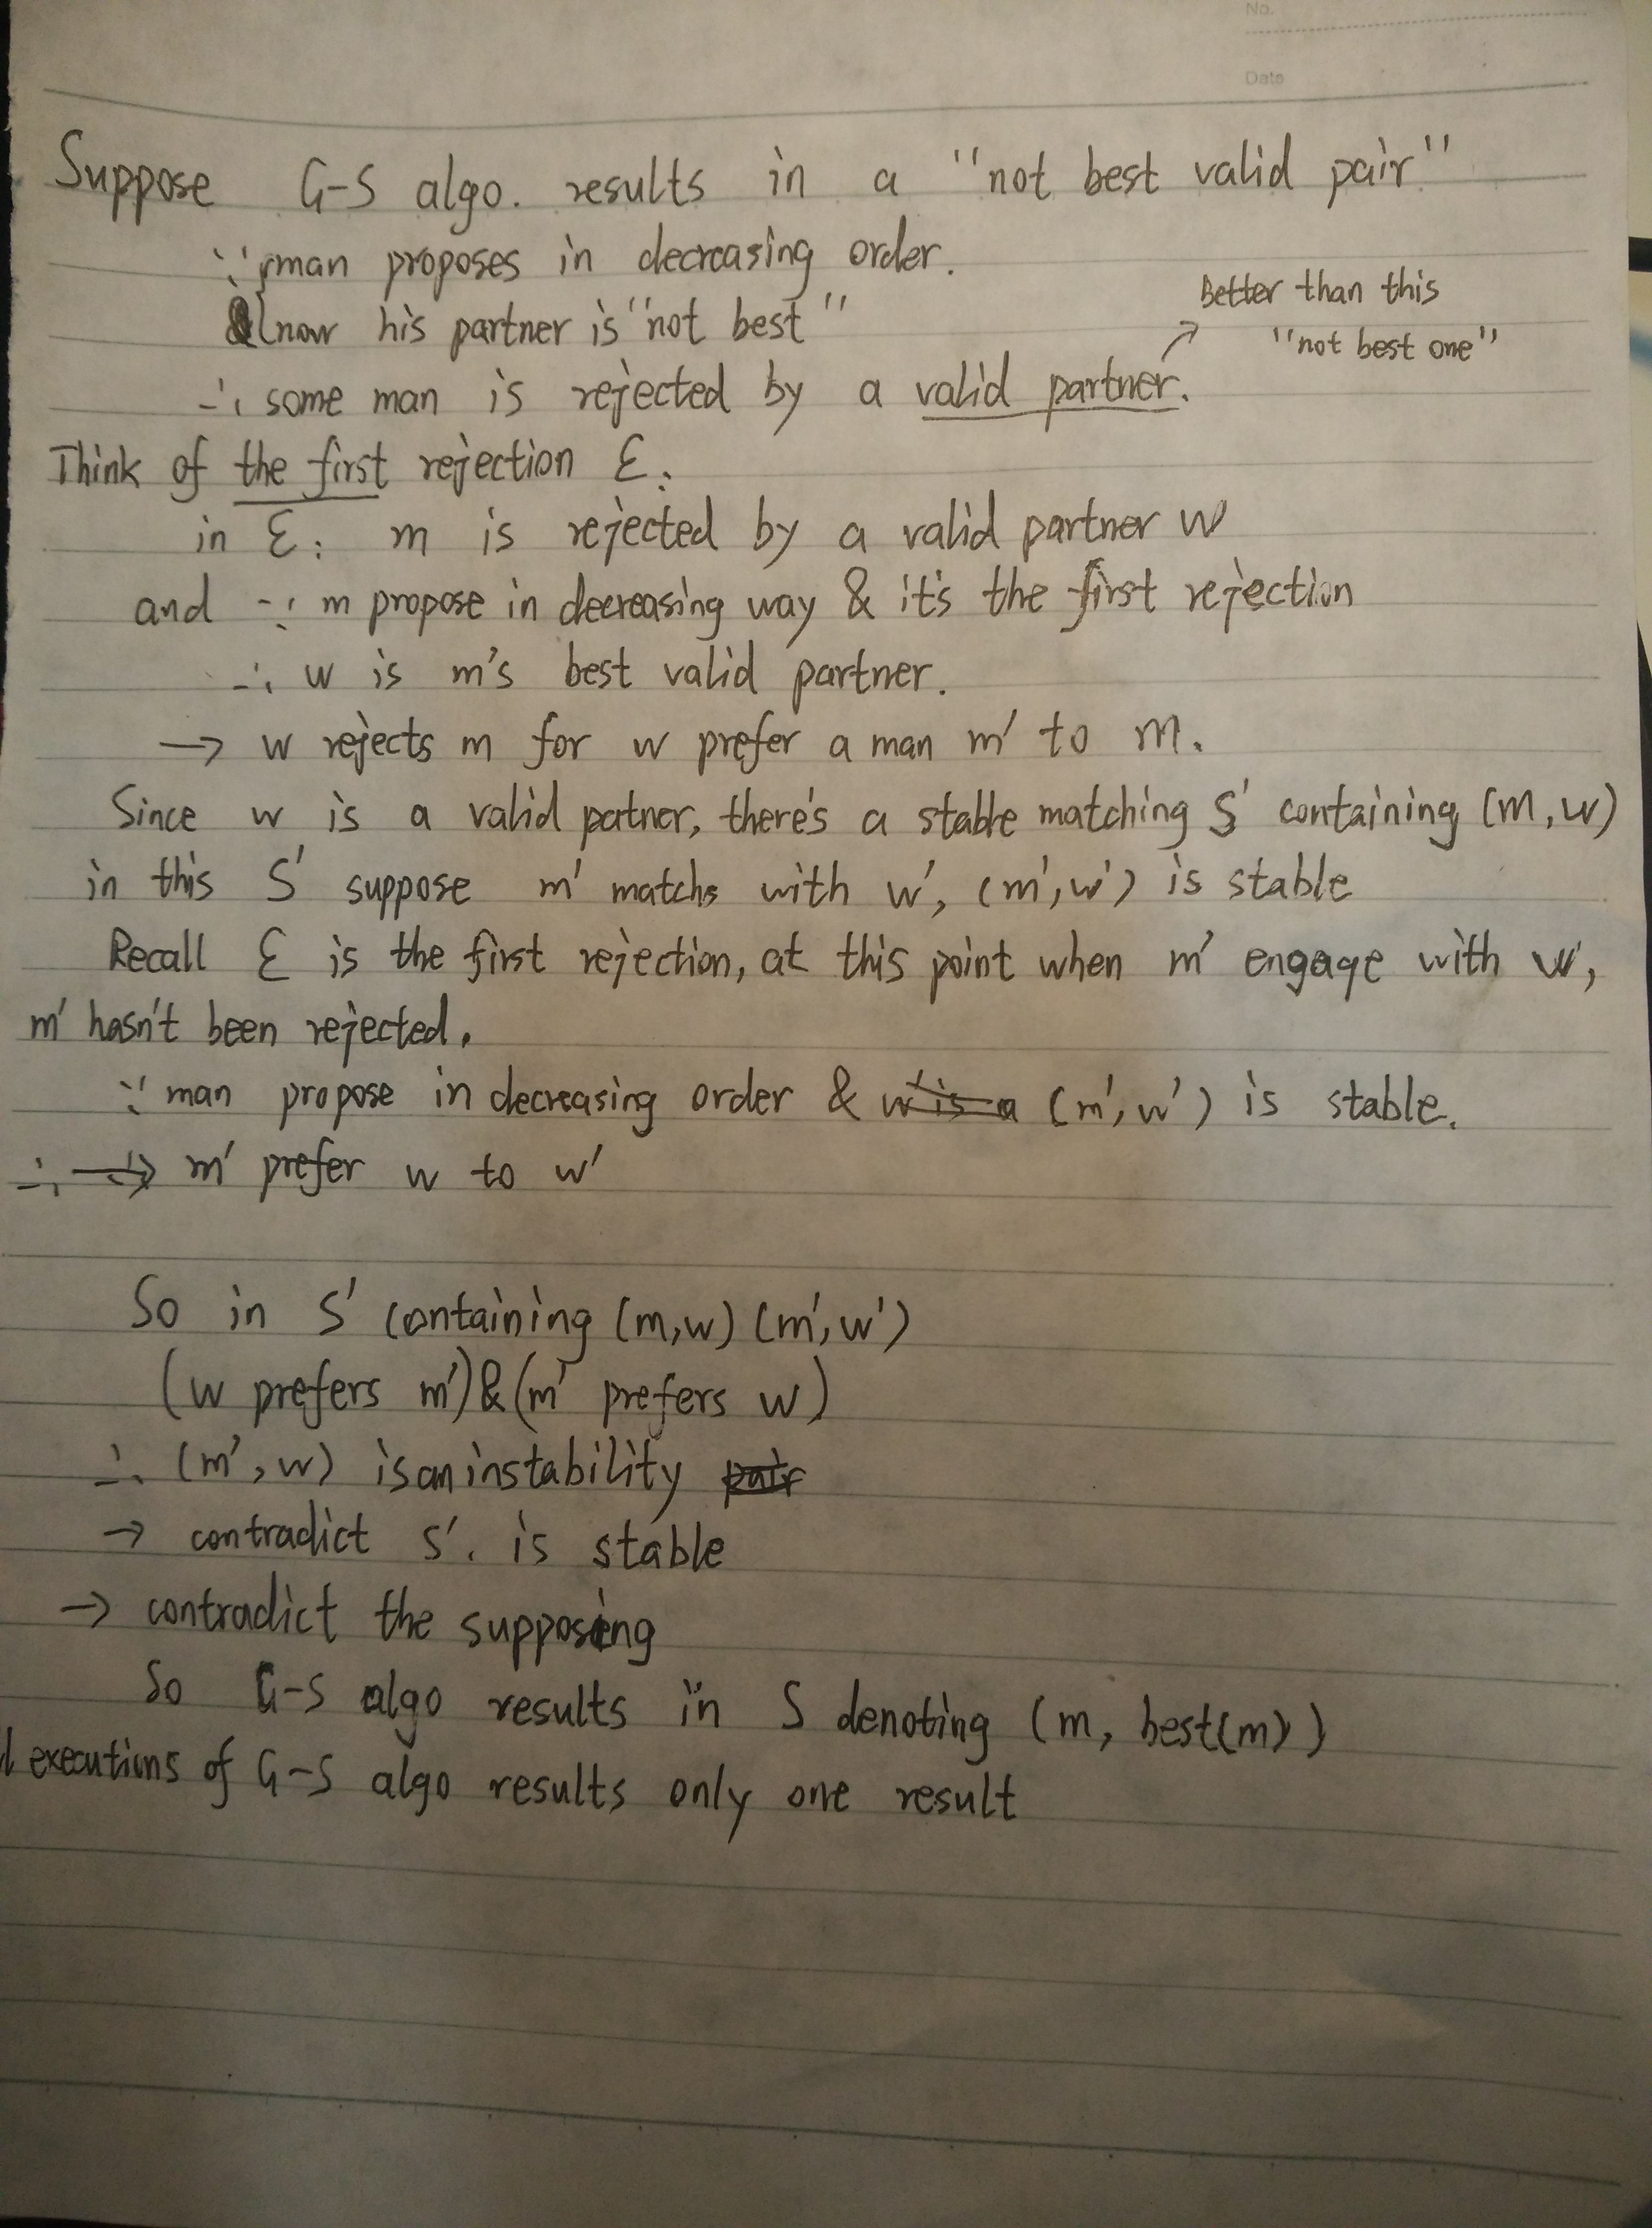 No.
Date
Suppose G-S algo. results in a "not best valid pair"
∵ { man proposes in decreasing order.
now his partner is "not best"
Better than this
"not best one"
∴ some man is rejected by a valid partner.
Think of the first rejection ε:
in ε: m is rejected by a valid partner w
and ∵ m propose in decreasing way & it's the first rejection
∴ w is m's best valid partner.
→ w rejects m for w prefer a man m' to m.
Since w is a valid partner, there's a stable matching S' containing (m, w)
in this S' suppose m' matchs with w', (m', w') is stable
Recall ε is the first rejection, at this point when m' engage with w,
m' hasn't been rejected.
∵ man propose in decreasing order & w is a (m', w') is stable.
∴ → m' prefer w to w'
So in S' containing (m,w) (m', w')
(w prefers m') & (m' prefers w)
∴ (m', w) is an instability pair
→ contradict S'. is stable
→ contradict the supposing
So G-S algo results in S denoting (m, best(m))
executions of G-S algo results only one result